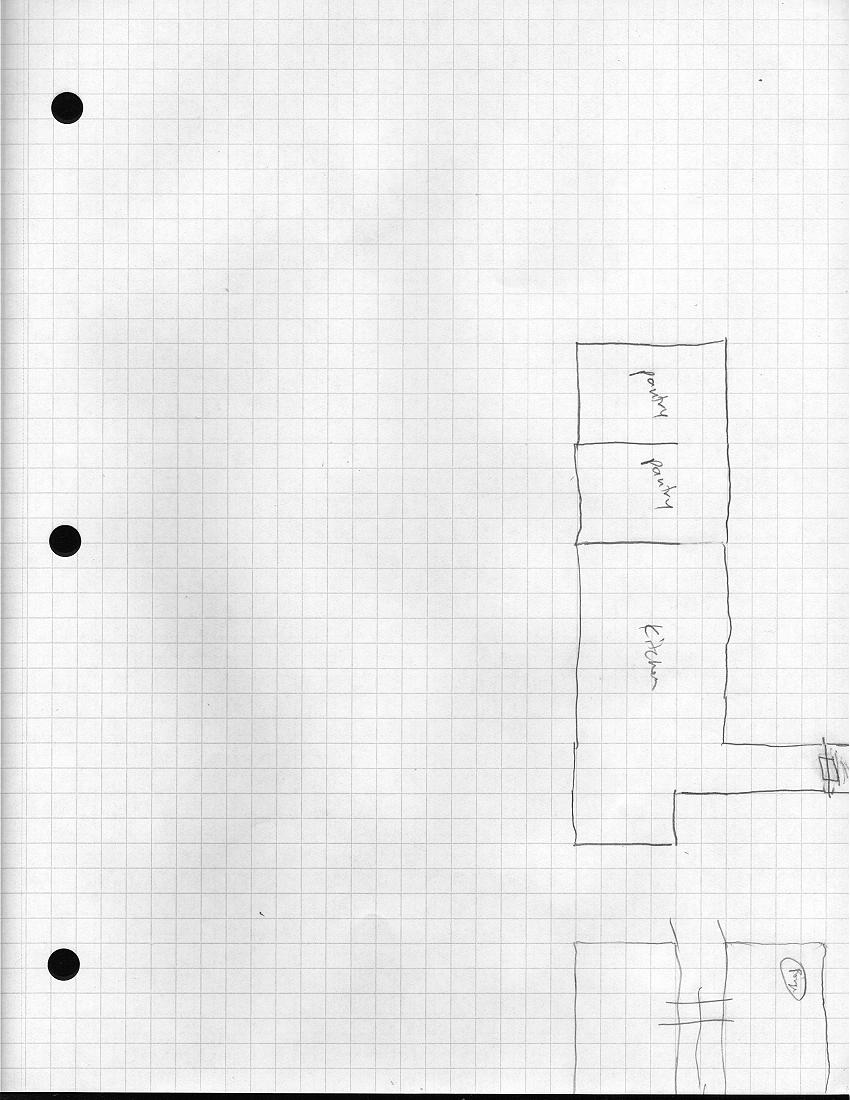 pantry
pantry
kitchen